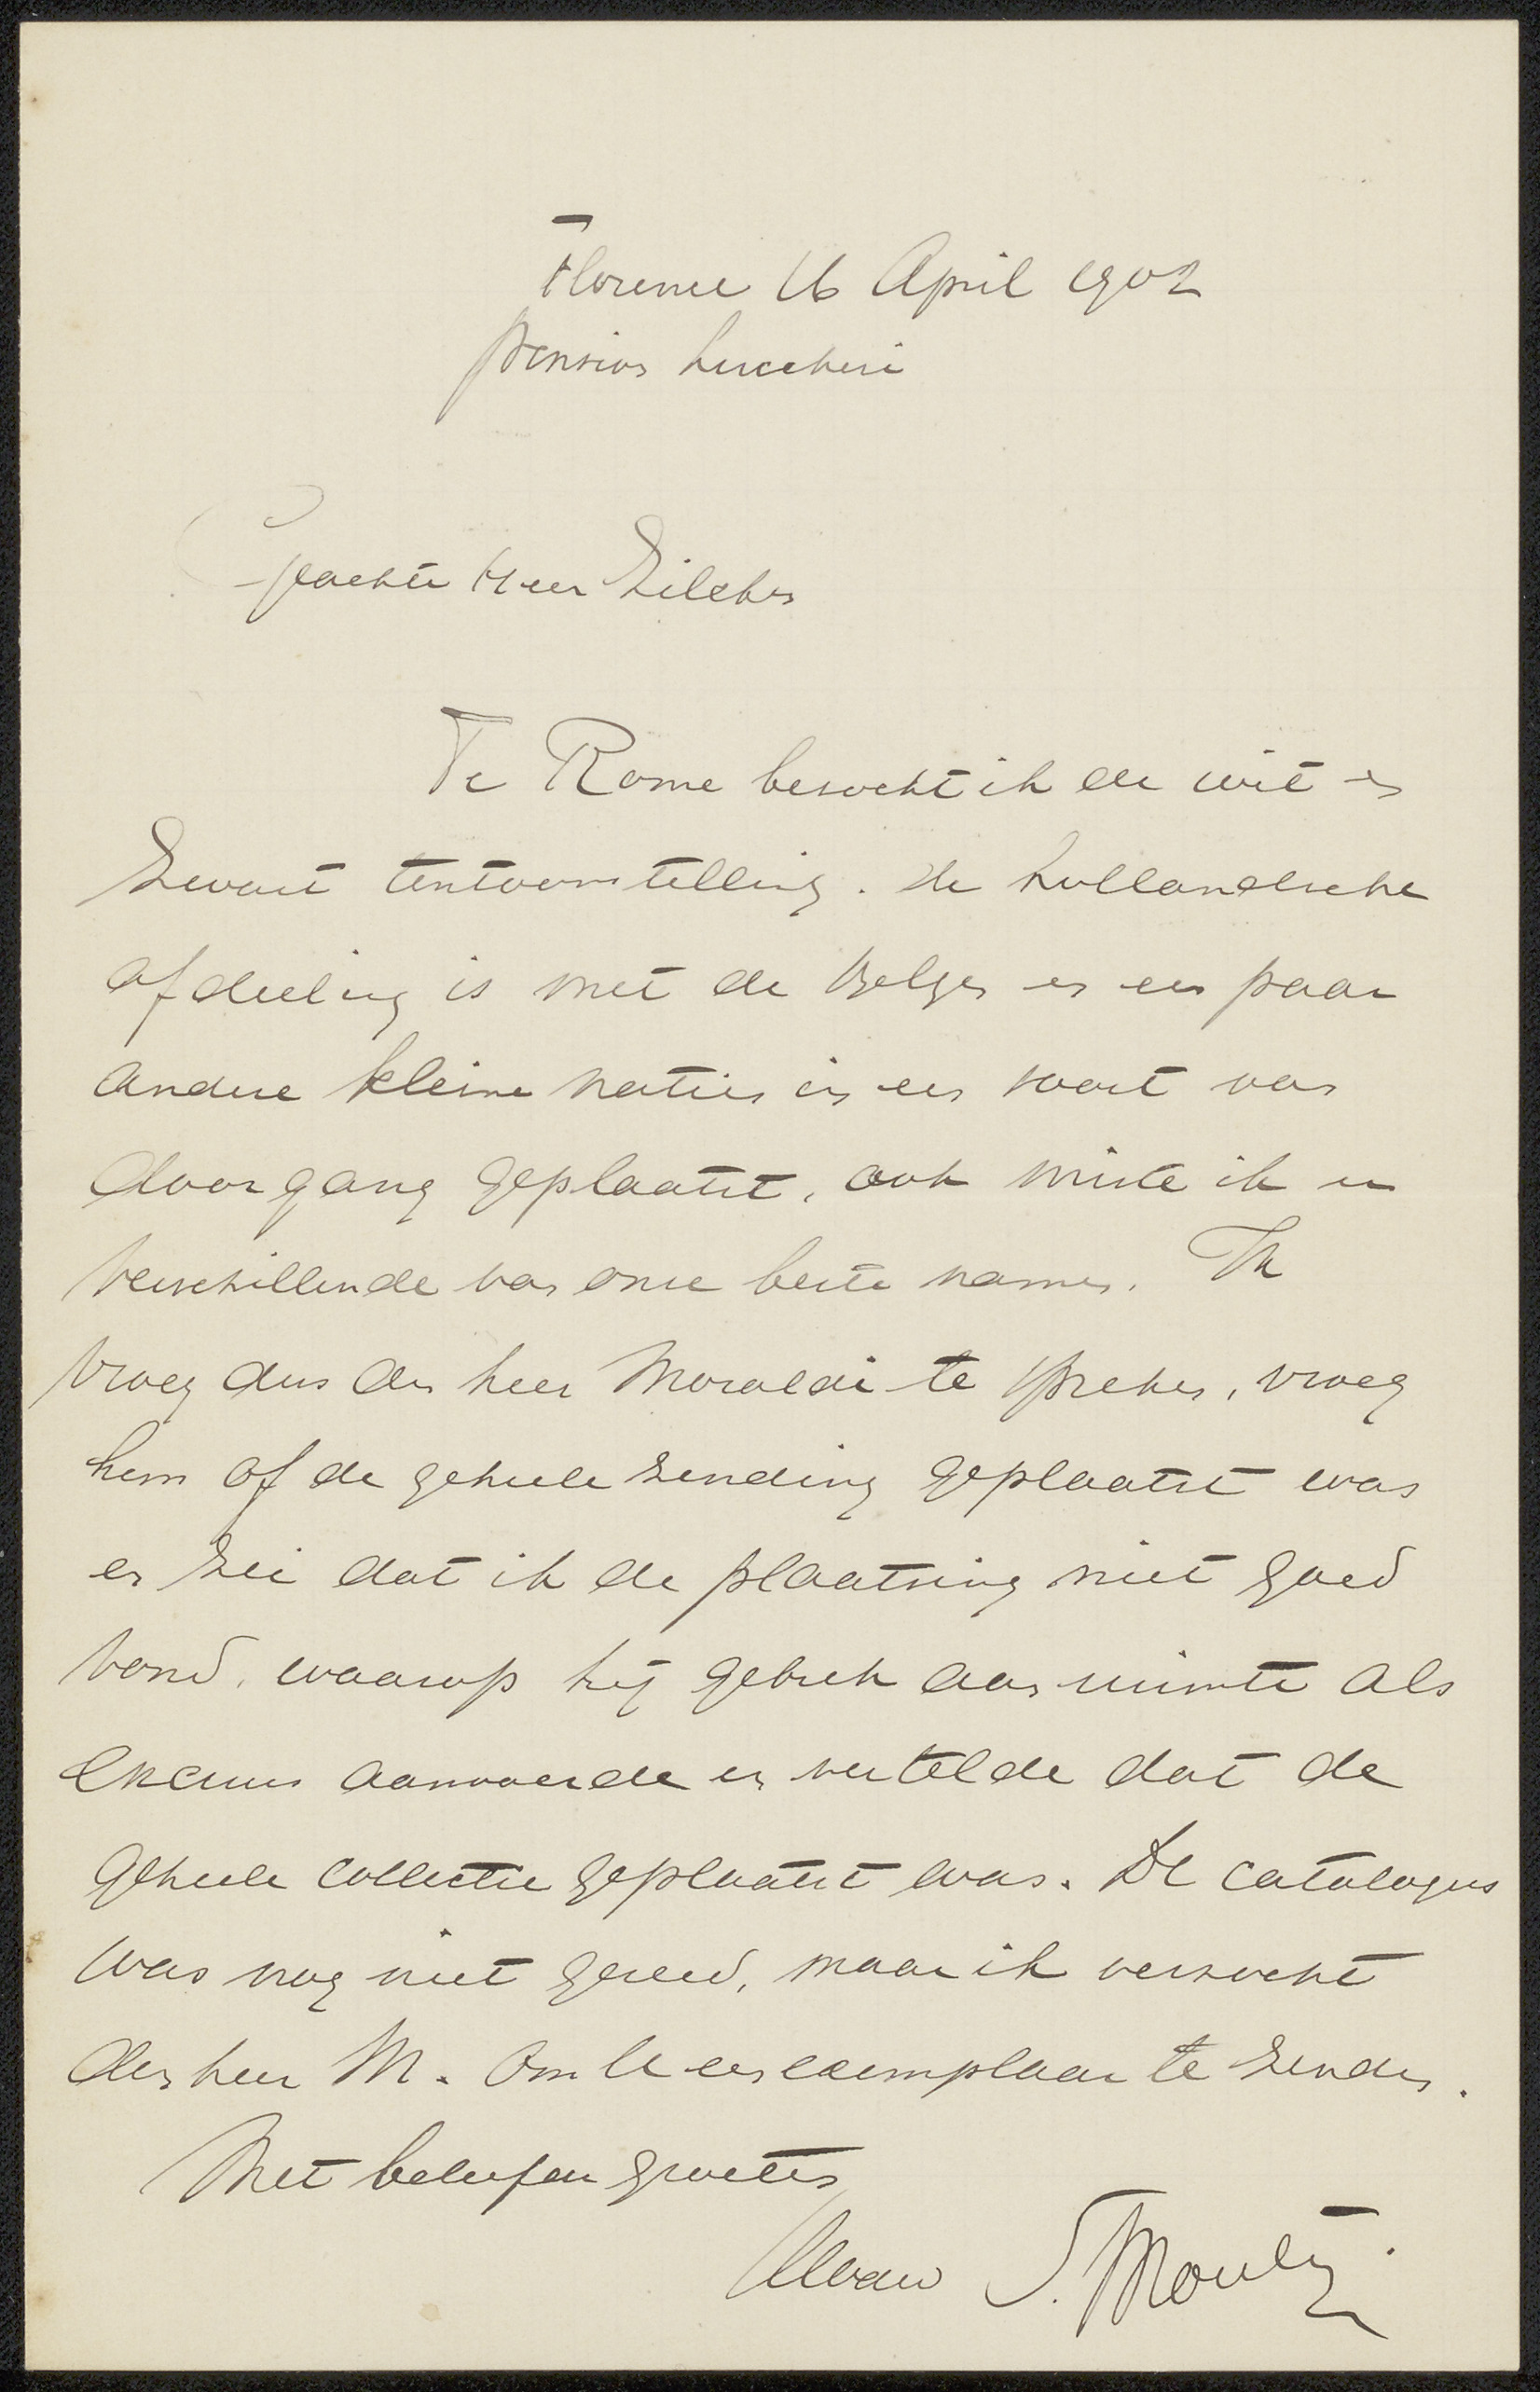 Florence 16 April 1902
pension Lucchesi
Geachte Heer Zilcken
Te Rome bezocht ik de wit en
Zwart tentoonstelling. de hollandsche
afdeeling is met de Belgen en een paar
andere kleine naties in een soort van
doorgang geplaatst, ook miste ik er
verschillende van onze beste namen. Ik
vroeg dus den heer Moraldi te spreken, vroeg
hem of de geheele zending geplaatst was
en zei dat ik de plaatsing niet goed
vond, waarop hij gebrek aan ruimte als
excuus aanvoerde en vertelde dat de
geheele collectie geplaatst was. De catalogus
was nog niet gereed, maar ik verzocht
den heer M. om U een exemplaar te zenden.
Met beleefde groeten
Uwen S. Moulijn